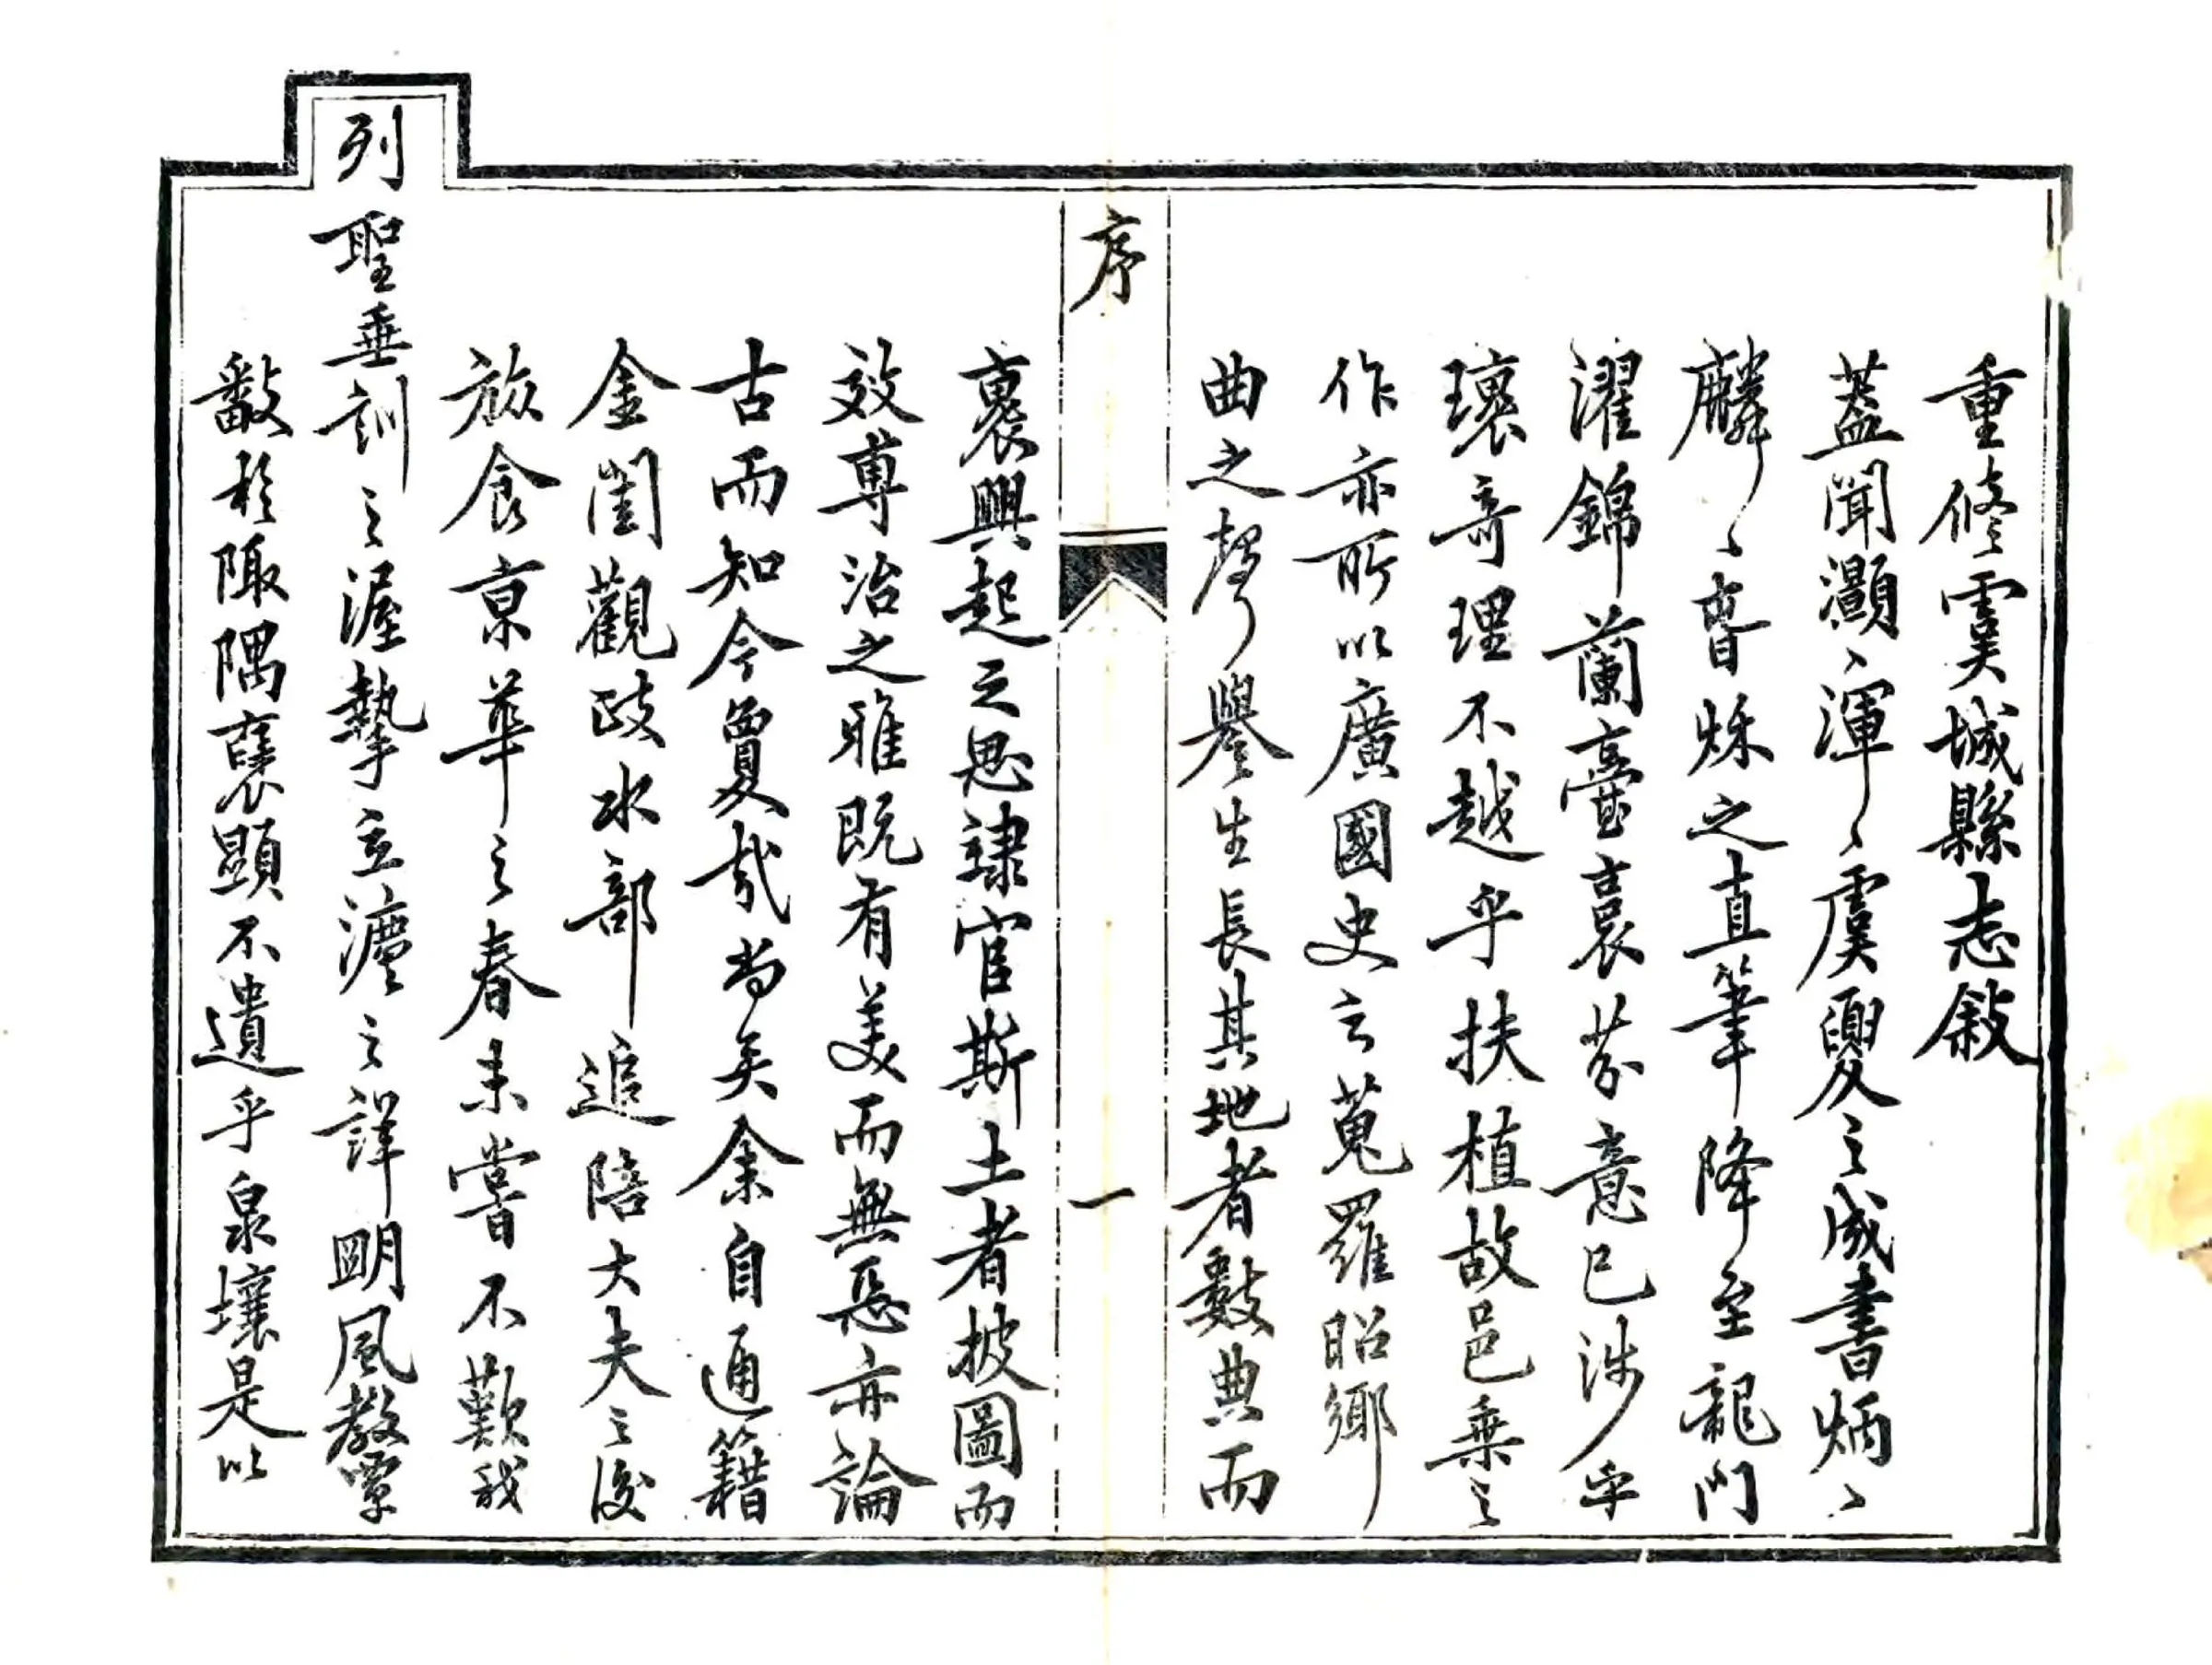 重修虞城縣志敘
蓋聞灝﹅渾﹅虞夏之成書炳﹅
麟﹅春秋之直筆降至龍門
濯錦蘭臺裛芬意已涉乎
瓌奇理不越乎扶植故邑乘之
作亦所以廣國史之蒐羅昭鄉
曲之聲譽生長其地者數典而
序
一
褱興起之思隸官斯土者披圖而
效尃治之雅既有美而無惡亦論
古而知今夐哉尚矣余自通籍
金閨觀政水部追陪大夫之後
旅食京華之春未嘗不歎我
列聖垂訓之渥摯立灋之詳明風教覃
敷於陬隅褒顯不遺乎泉壤是以